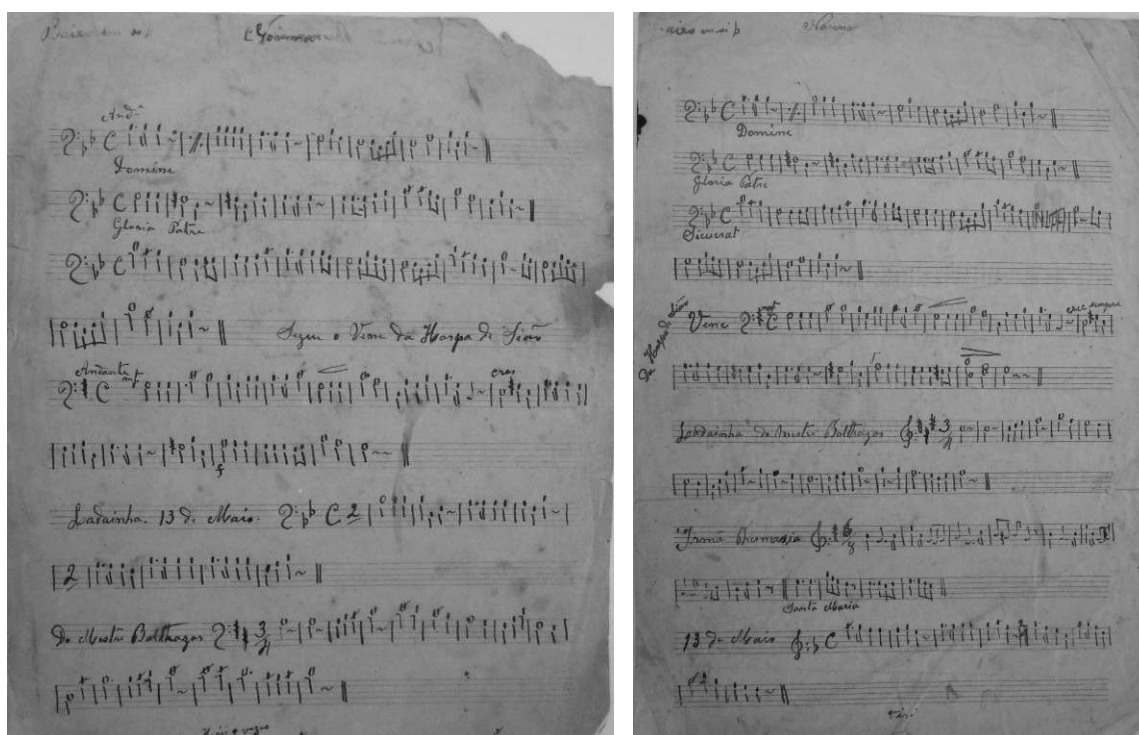 Novena
And.e
Domine
Gloria Patre
Segue o Veni da Harpa de Sião
Andante mf
cres
f
Ladainha. 13 de Maio.
2
2
De Mestre Balthazar 3/4
Novena
Domine
Gloria Patre
Sicuerat
Da Harpa de Sião
Veni
cresc sempre
Ladainha de Mestre Balthazar 3/4
Irmã
Santa Maria
13 de Maio